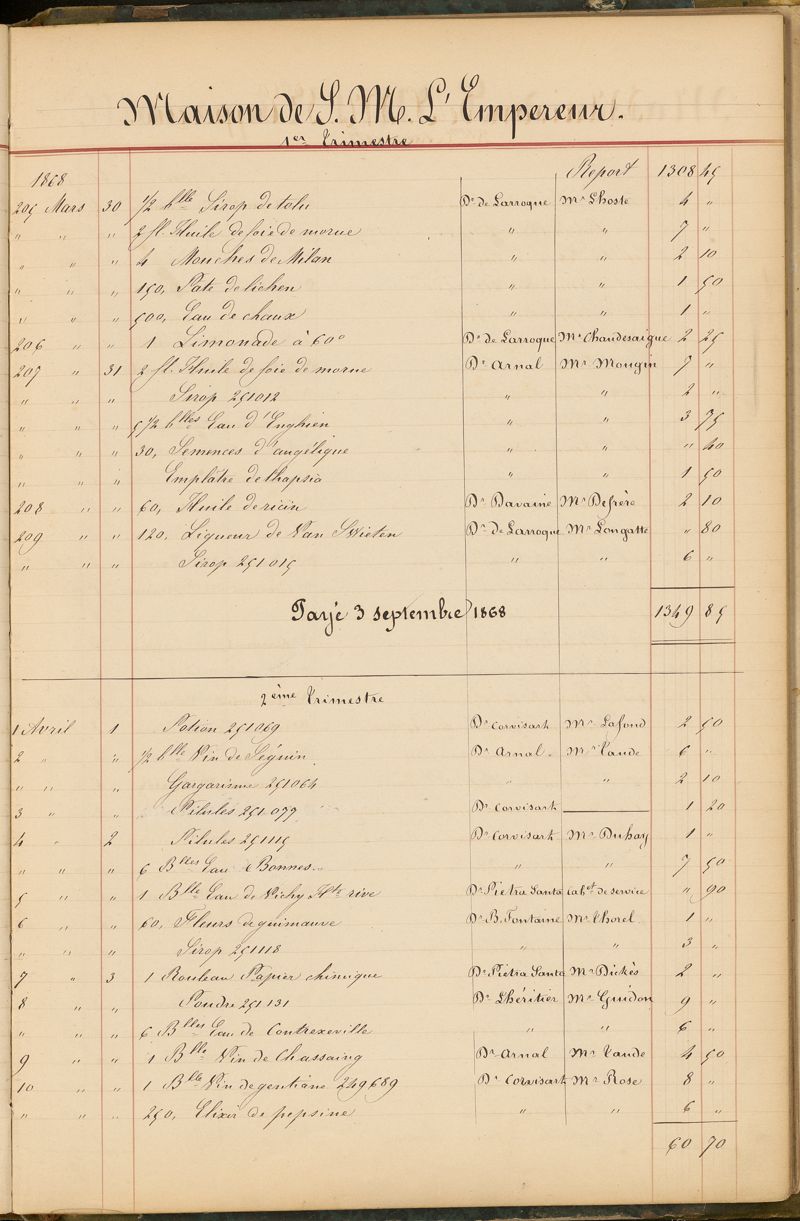 Maison de S. M. L'Empereur.
1er Trimestre
1868 Report 1308 45
205 Mars 30 1/2 blle Sirop de tolu Dr de Larroque Mr Lhoste 4 "
" " " 2 fl. Huile de foie de morue " " 7 "
" " " 4 Mouches de Milan " " 2 10
" " " 150, Pate de lichen " " 1 50
" " " 500, Eau de chaux " " 1 "
206 " " 1 Limonade à 60° Dr de Larroque Mr Chaudesaigue 2 25
207 " 31 2 fl. Huile de foie de morue Dr Arnal Mr Mougin 7 "
" " " Sirop 251012 " " 2 "
" " " 5 1/2 blles Eau d'Enghien " " 3 75
" " " 30, Semences d'angélique " " " 40
" " " Emplâtre de thapsia " " 1 50
208 " " 60, Huile de ricin Dr Davaine Mr Defrère 2 10
209 " " 120, Liqueur de Van Swieten Dr de Larroque Mr Longatte " 80
" " " Sirop 251015 " " 6 "
Payé 3 septembre 1868 1349 85
2ème Trimestre
1 Avril 1 Potion 251069 Dr Corvisart Mr Lafond 2 50
2 " " 1/2 blle Vin de Séguin Dr Arnal Mr Vaude 6 "
" " " Gargarisme 251064 " " 2 10
3 " " Pilules 251077 Dr Corvisart 1 20
4 " 2 Pilules 251115 Dr Corvisart Mr Duhay 1 "
" " " 6 Blles Eau Bonnes " " 7 50
5 " " 1 Blle Eau de Vichy Hte rive Dr Pietra Santa Cabt de service " 90
6 " " 60, Fleurs de guimauve Dr B. Fontaine Mr Chorel 1 "
" " " Sirop 251118 " " 3 "
7 " 3 1 Rouleau Papier chimique Dr Pietra Santa Mr Dickès 2 "
8 " " Poudre 251131 Dr Lhéritier Mr Guidon 9 "
" " " 6 Blles Eau de Contrexeville " " 6 "
9 " " 1 Blle Vin de Chassaing Dr Arnal Mr Vaude 4 50
10 " " 1 Blle Vin de gentiane 249689 Dr Corvisart Mr Rose 8 "
" " " 250, Elixir de pepsine " " 6 "
60 70